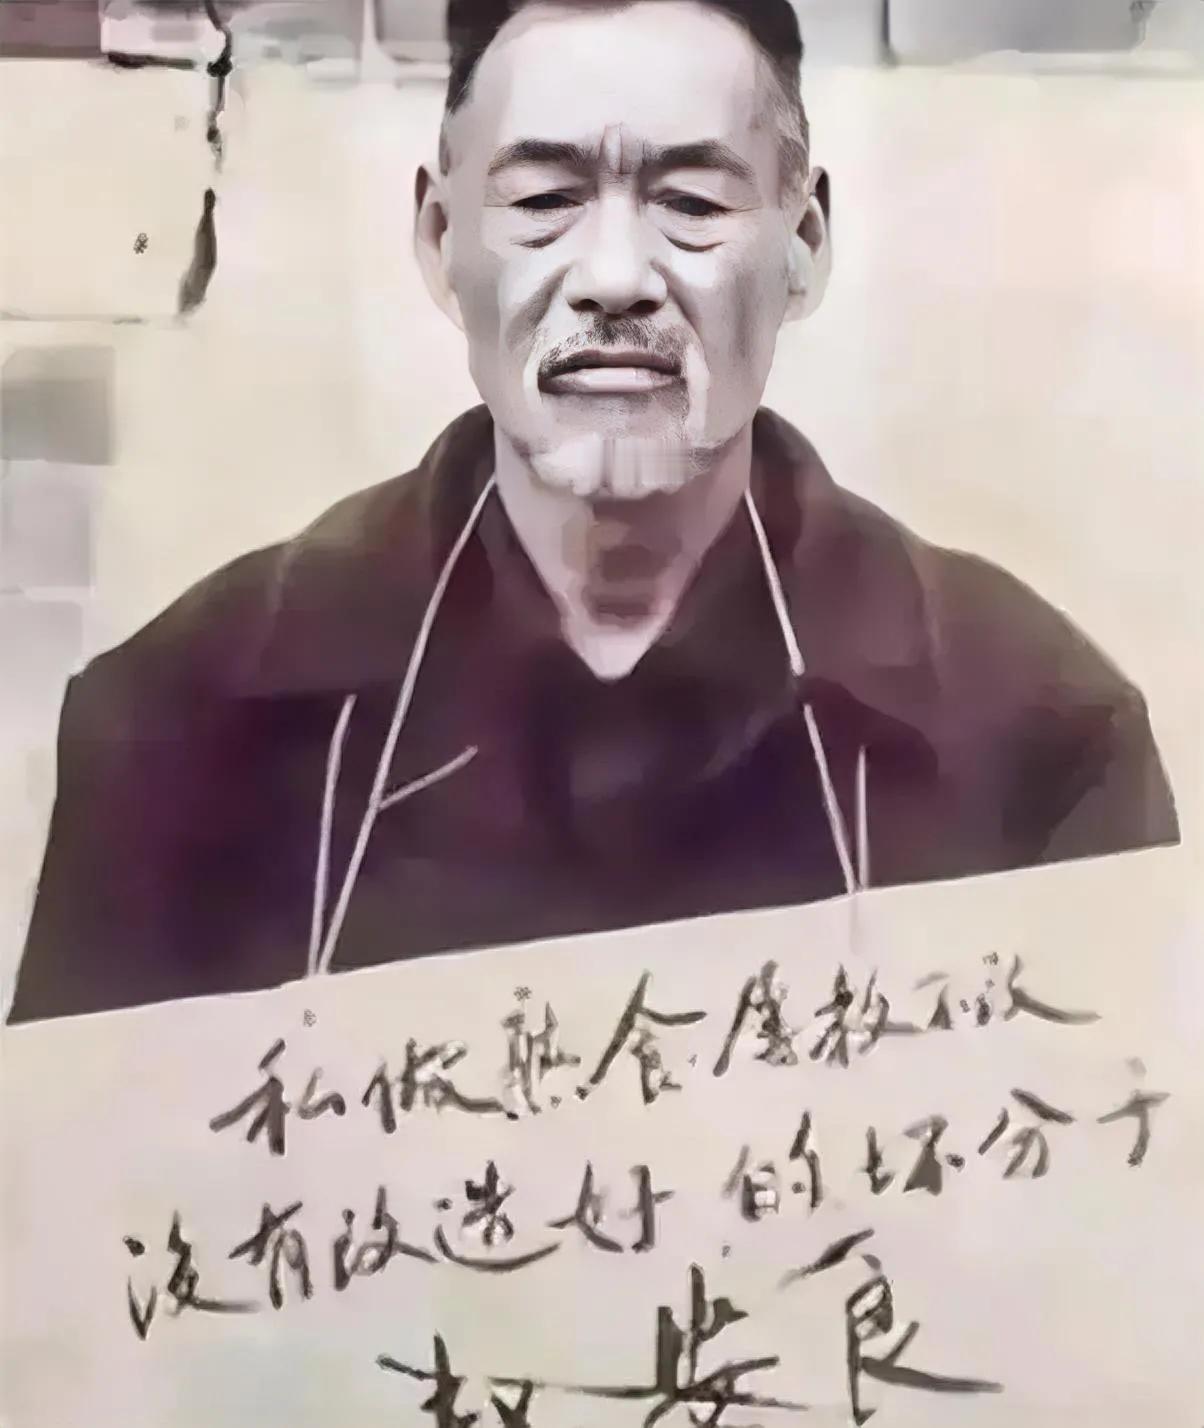 私做熟食屡教不改
没有改造好的坏分子
赵安良